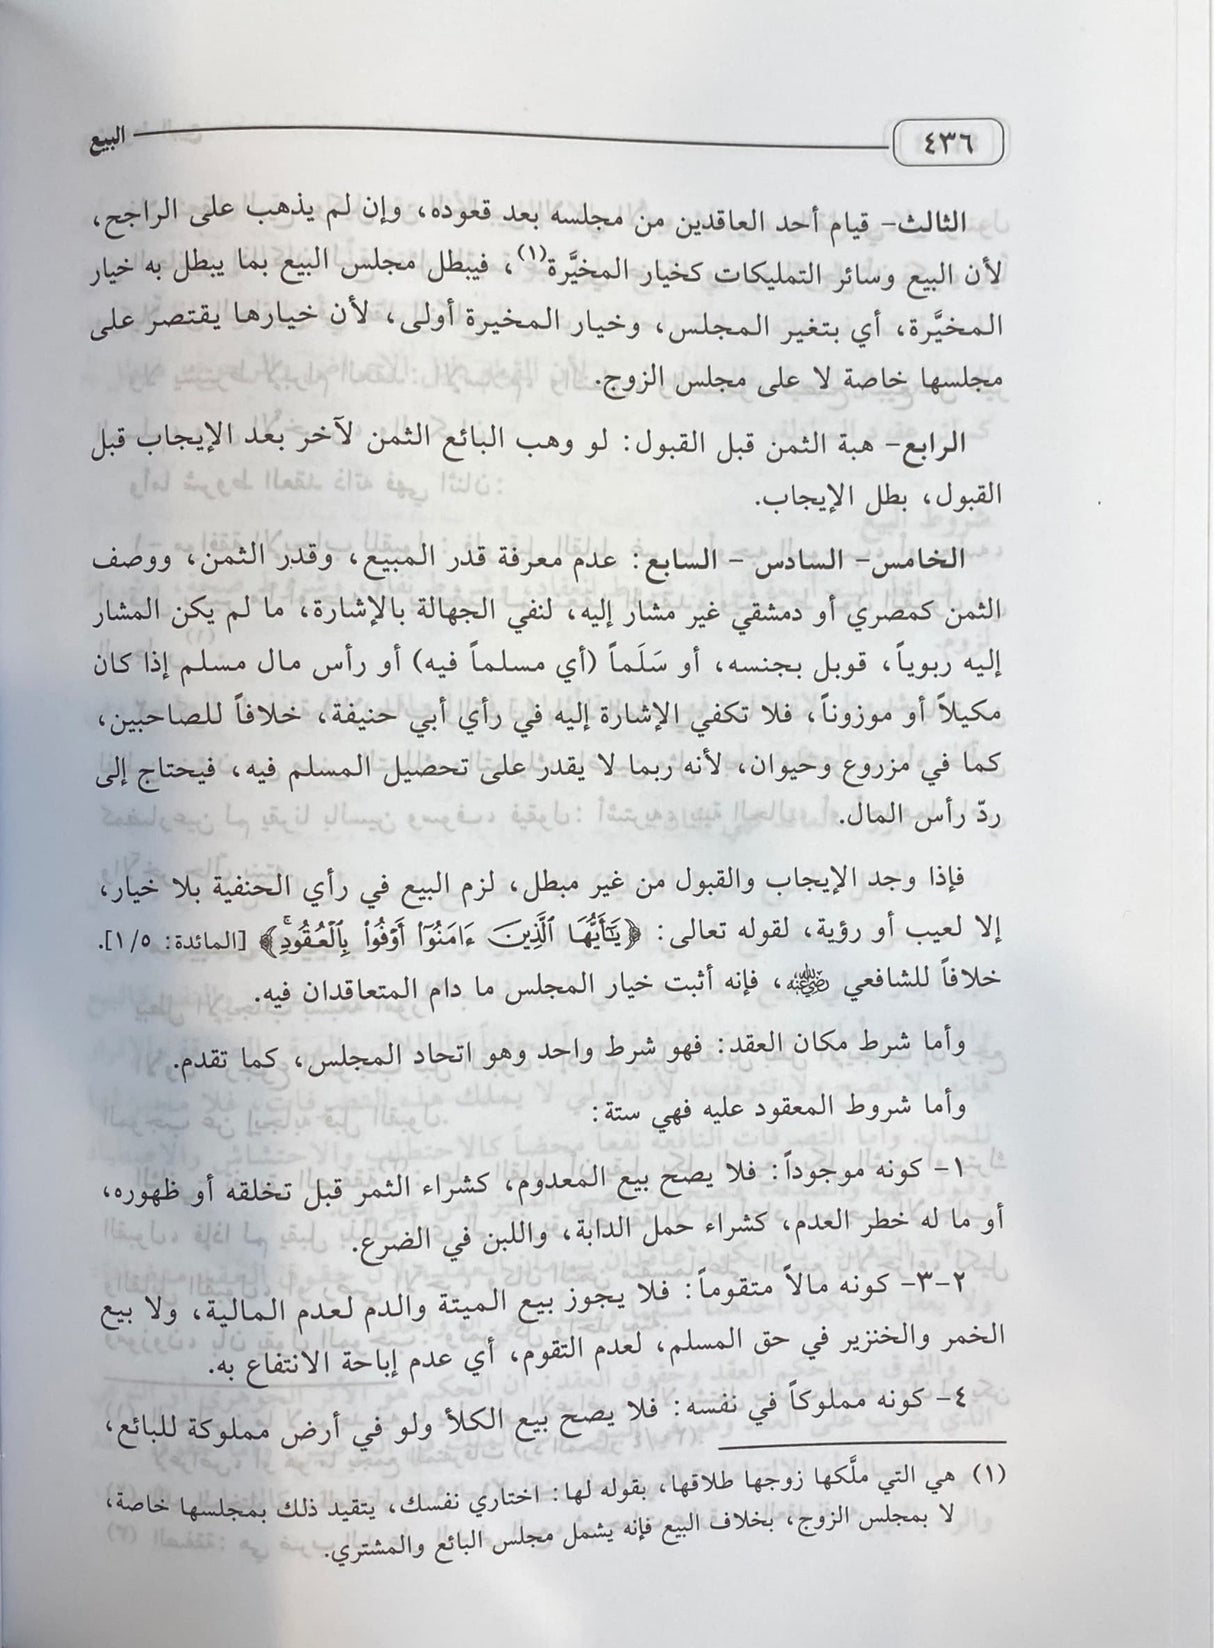 ٤٣٦ البيع
الثالث- قيام أحد العاقدين من مجلسه بعد قعوده، وإن لم يذهب على الراجح،
لأن البيع وسائر التمليكات كخيار المخيَّرة(١)، فيبطل مجلس البيع بما يبطل به خيار
المخيَّرة، أي بتغير المجلس، وخيار المخيرة أولى، لأن خيارها يقتصر على
مجلسها خاصة لا على مجلس الزوج.
الرابع- هبة الثمن قبل القبول: لو وهب البائع الثمن لآخر بعد الإيجاب قبل
القبول، بطل الإيجاب.
الخامس- السادس - السابع: عدم معرفة قدر المبيع، وقدر الثمن، ووصف
الثمن كمصري أو دمشقي غير مشار إليه، لنفي الجهالة بالإشارة، ما لم يكن المشار
إليه ربوياً، قوبل بجنسه، أو سَلَماً (أي مسلماً فيه) أو رأس مال مسلم إذا كان
مكيلاً أو موزوناً، فلا تكفي الإشارة إليه في رأي أبي حنيفة، خلافاً للصاحبين،
كما في مزروع وحيوان، لأنه ربما لا يقدر على تحصيل المسلم فيه، فيحتاج إلى
ردّ رأس المال.
فإذا وجد الإيجاب والقبول من غير مبطل، لزم البيع في رأي الحنفية بلا خيار،
إلا لعيب أو رؤية، لقوله تعالى: ﴿يَٰٓأَيُّهَا ٱلَّذِينَ ءَامَنُوٓا۟ أَوْفُوا۟ بِٱلْعُقُودِۚ﴾ [المائدة: ١/٥].
خلافاً للشافعي رضي الله عنه، فإنه أثبت خيار المجلس ما دام المتعاقدان فيه.
وأما شرط مكان العقد: فهو شرط واحد وهو اتحاد المجلس، كما تقدم.
وأما شروط المعقود عليه فهي ستة:
١- كونه موجوداً: فلا يصح بيع المعدوم، كشراء الثمر قبل تخلقه أو ظهوره،
أو ما له خطر العدم، كشراء حمل الدابة، واللبن في الضرع.
٢-٣- كونه مالاً متقوماً: فلا يجوز بيع الميتة والدم لعدم المالية، ولا بيع
الخمر والخنزير في حق المسلم، لعدم التقوم، أي عدم إباحة الانتفاع به.
٤- كونه مملوكاً في نفسه: فلا يصح بيع الكلأ ولو في أرض مملوكة للبائع،
(١) هي التي ملَّكها زوجها طلاقها، بقوله لها: اختاري نفسك، يتقيد ذلك بمجلسها خاصة،
لا بمجلس الزوج، بخلاف البيع فإنه يشمل مجلس البائع والمشتري.